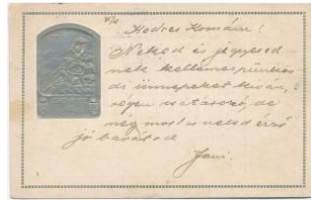 Kedves Komám!
Neked és jegyesed-
nek kellemes pünkös-
di ünnepeket kíván,
régen csatászó, de
még most is neked érző
jó barátod
Jani.